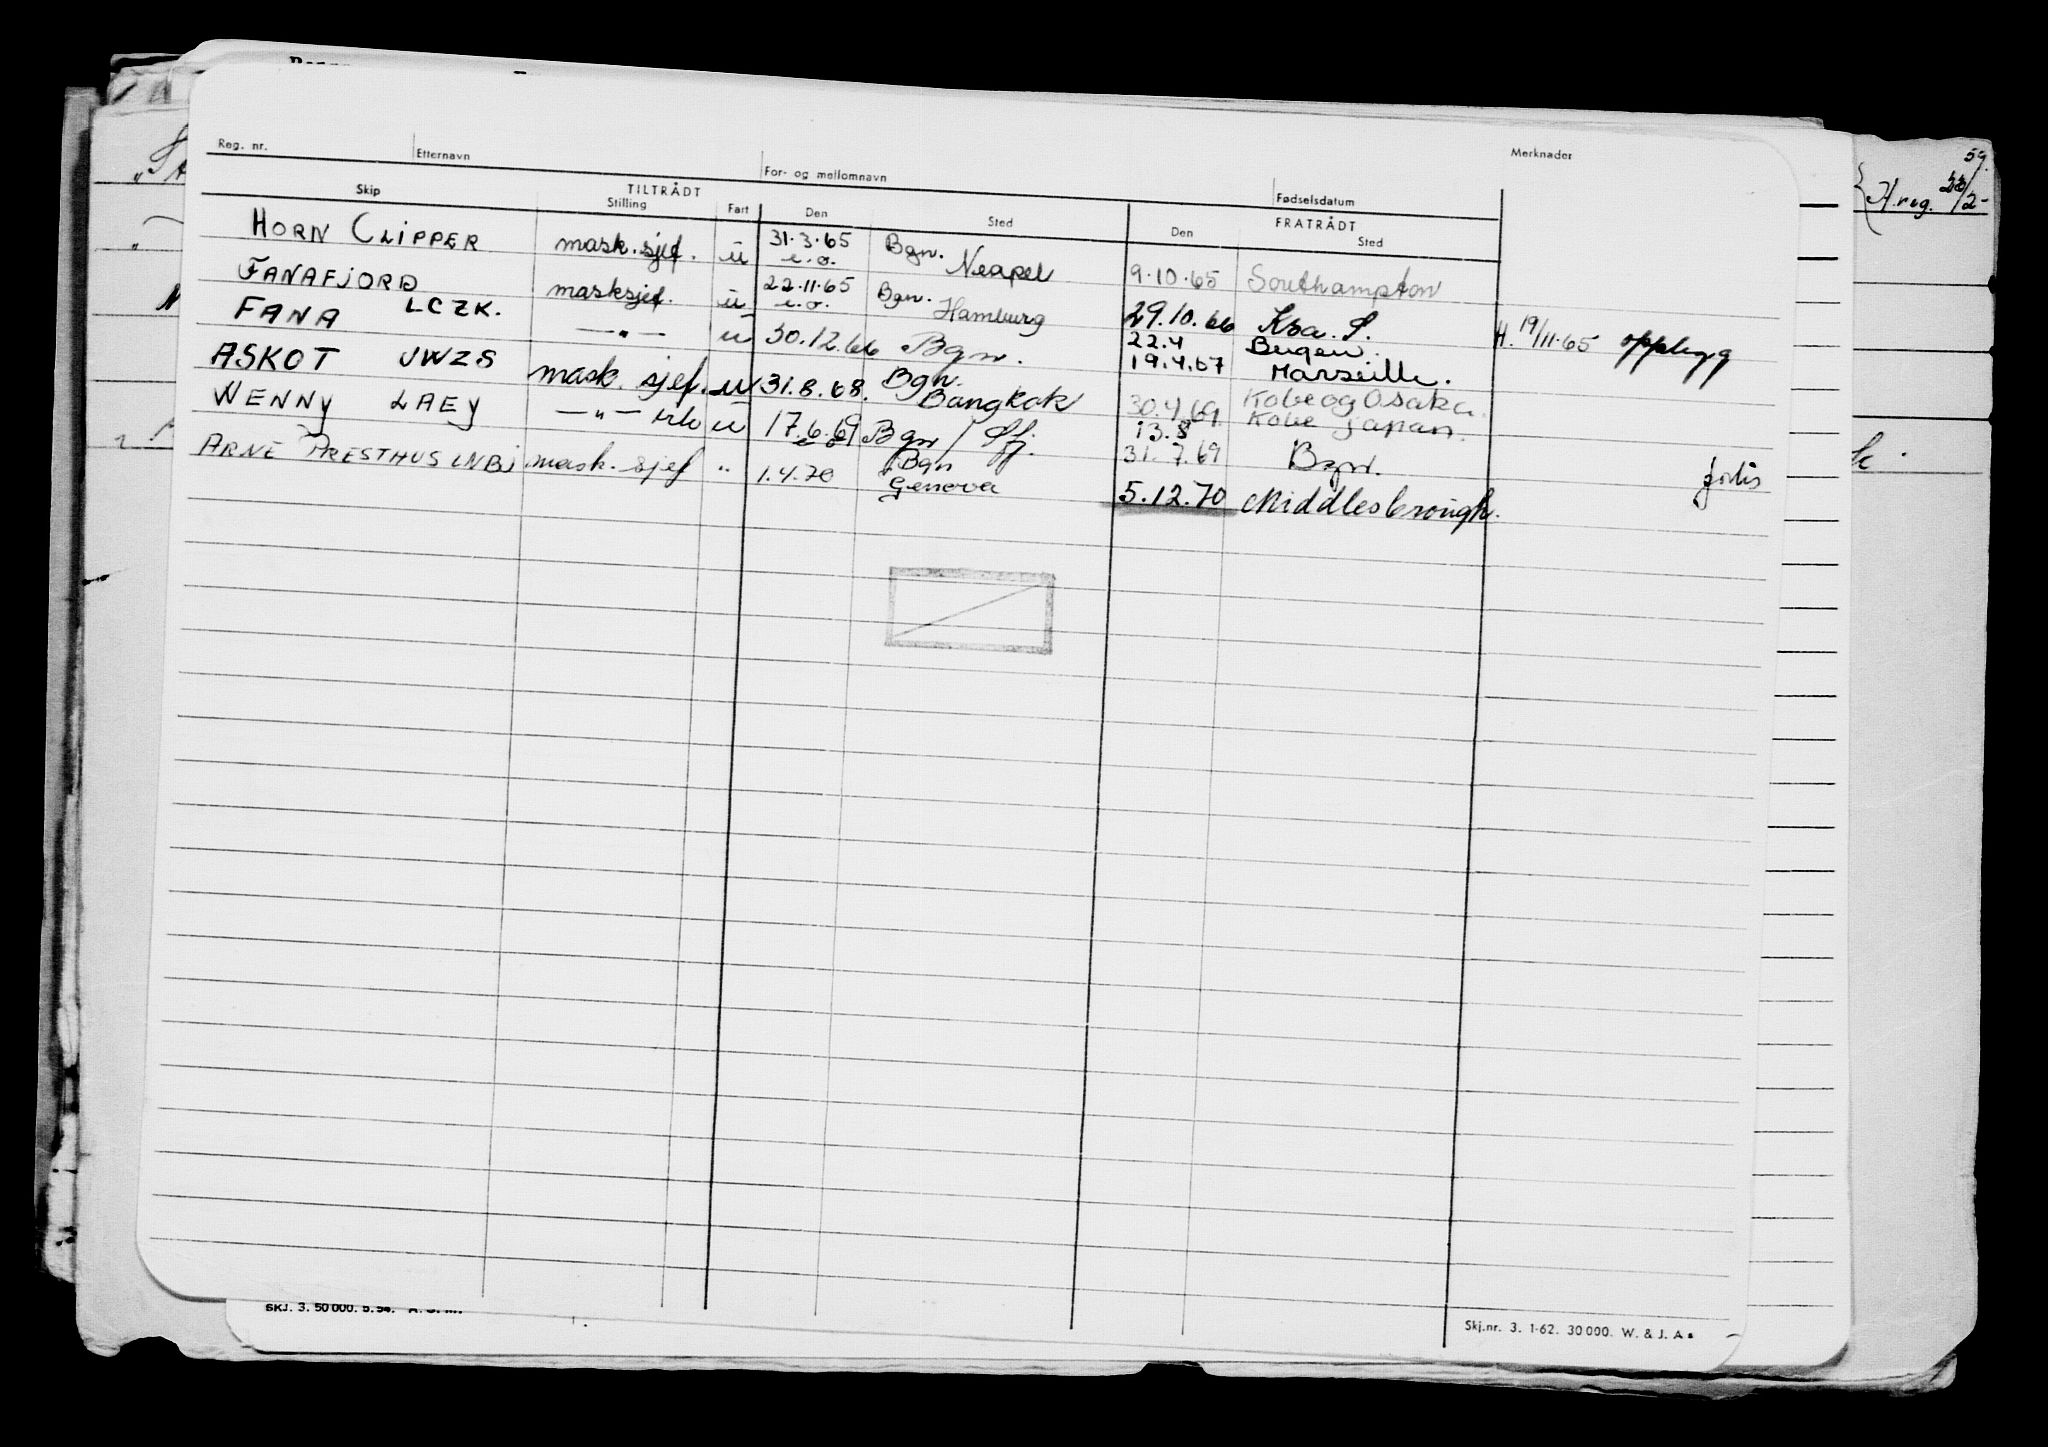 Reg. nr. Etternavn For- og mellomnavn Fødselsdatum Merknader
TILTRÅDT FRATRÅDT
Skip Stilling Fart Den Sted Den Sted
HORN CLIPPER mask.sjef. u 31.3.65 e.o. Bgn. Neapel 9.10.65 Southampton
FANAFJORD LCZK. masksjef. u 22.11.65 e.o. Bgn. Hamburg 29.10.66 Ksa. S. H. 19/11.65
FANA —"— u 30.12.66 Bgn. 22.4 Bergen.
19.4.67 Marseille.
ASKOT JWZS mask. sjef. u 31.8.68. Bgn. Bangkok 30.4.69. Kobe og Osaka.
WENNY LAEY —"— u 17.6.69 Bgn/ Sfj. 13.8 Kobe Japan.
31.7.69 Bgn.
ARNE PRESTHUS LNBJ mask. sjef " 1.4.70 Bgn Genova 5.12.70 Middlesbrough.
59.
H.reg. /2-
SKJ. 3. 50 000. 5.54.
Skj.nr. 3. 1-62. 30 000. W. & J. A s